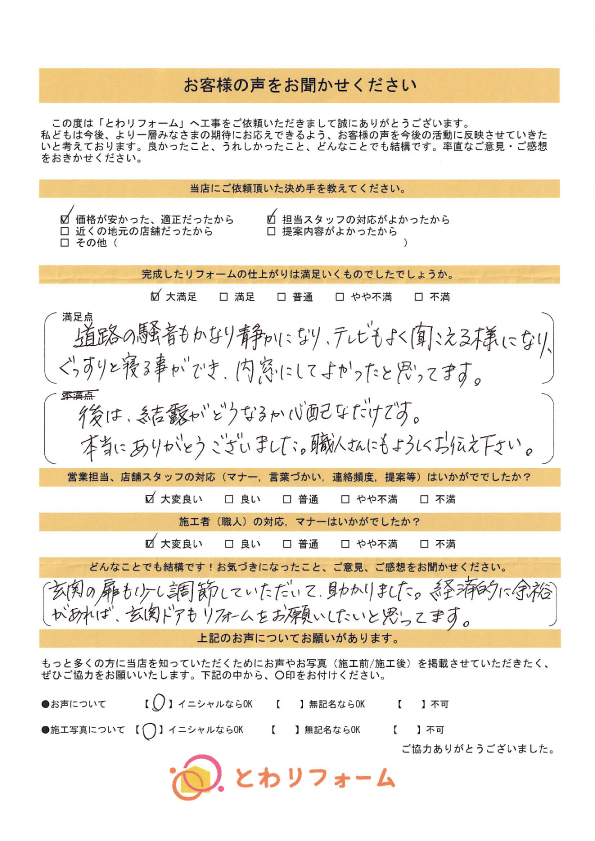 お客様の声をお聞かせください
この度は「とわリフォーム」へ工事をご依頼いただきまして誠にありがとうございます。
私どもは今後、より一層みなさまの期待にお応えできるよう、お客様の声を今後の活動に反映させていきた
いと考えております。良かったこと、うれしかったこと、どんなことでも結構です。率直なご意見・ご感想
をおきかせください。
当店にご依頼頂いた決め手を教えてください。
☑ 価格が安かった、適正だったから ☑ 担当スタッフの対応がよかったから
□ 近くの地元の店舗だったから □ 提案内容がよかったから
□ その他（ ）
完成したリフォームの仕上がりは満足いくものでしたでしょうか。
☑ 大満足 □ 満足 □ 普通 □ やや不満 □ 不満
満足点
道路の騒音もかなり静かになり、テレビもよく聞こえる様になり、
ぐっすりと寝る事ができ、内窓にしてよかったと思ってます。
不満点
後は、結露がどうなるか心配なだけです。
本当にありがとうございました。職人さんにもよろしくお伝え下さい。
営業担当、店舗スタッフの対応（マナー, 言葉づかい, 連絡頻度, 提案等）はいかがででしたか？
☑ 大変良い □ 良い □ 普通 □ やや不満 □ 不満
施工者（職人）の対応, マナーはいかがでしたか？
☑ 大変良い □ 良い □ 普通 □ やや不満 □ 不満
どんなことでも結構です！お気づきになったこと、ご意見、ご感想をお聞かせください。
玄関の扉も少し調節していただいて、助かりました。経済的に余裕
があれば、玄関ドアもリフォームをお願いしたいと思ってます。
上記のお声についてお願いがあります。
もっと多くの方に当店を知っていただくためにお声やお写真（施工前/施工後）を掲載させていただきたく、
ぜひご協力をお願いいたします。下記の中から、〇印をお付けください。
●お声について 【〇】イニシャルならOK 【 】無記名ならOK 【 】不可
●施工写真について 【〇】イニシャルならOK 【 】無記名ならOK 【 】不可
ご協力ありがとうございました。
とわリフォーム